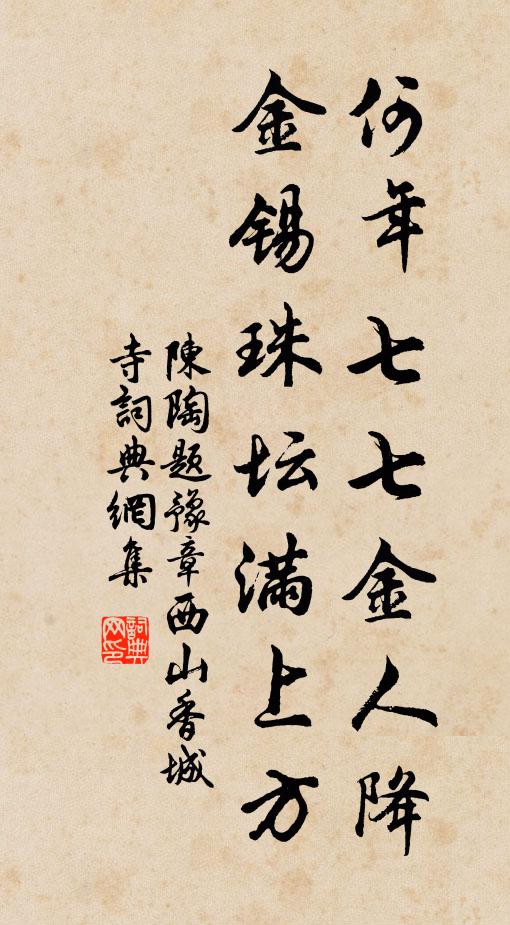 何年七七金人降
金锡珠坛满上方
陳陶題豫章西山香城
寺詞典網集
詞典网印